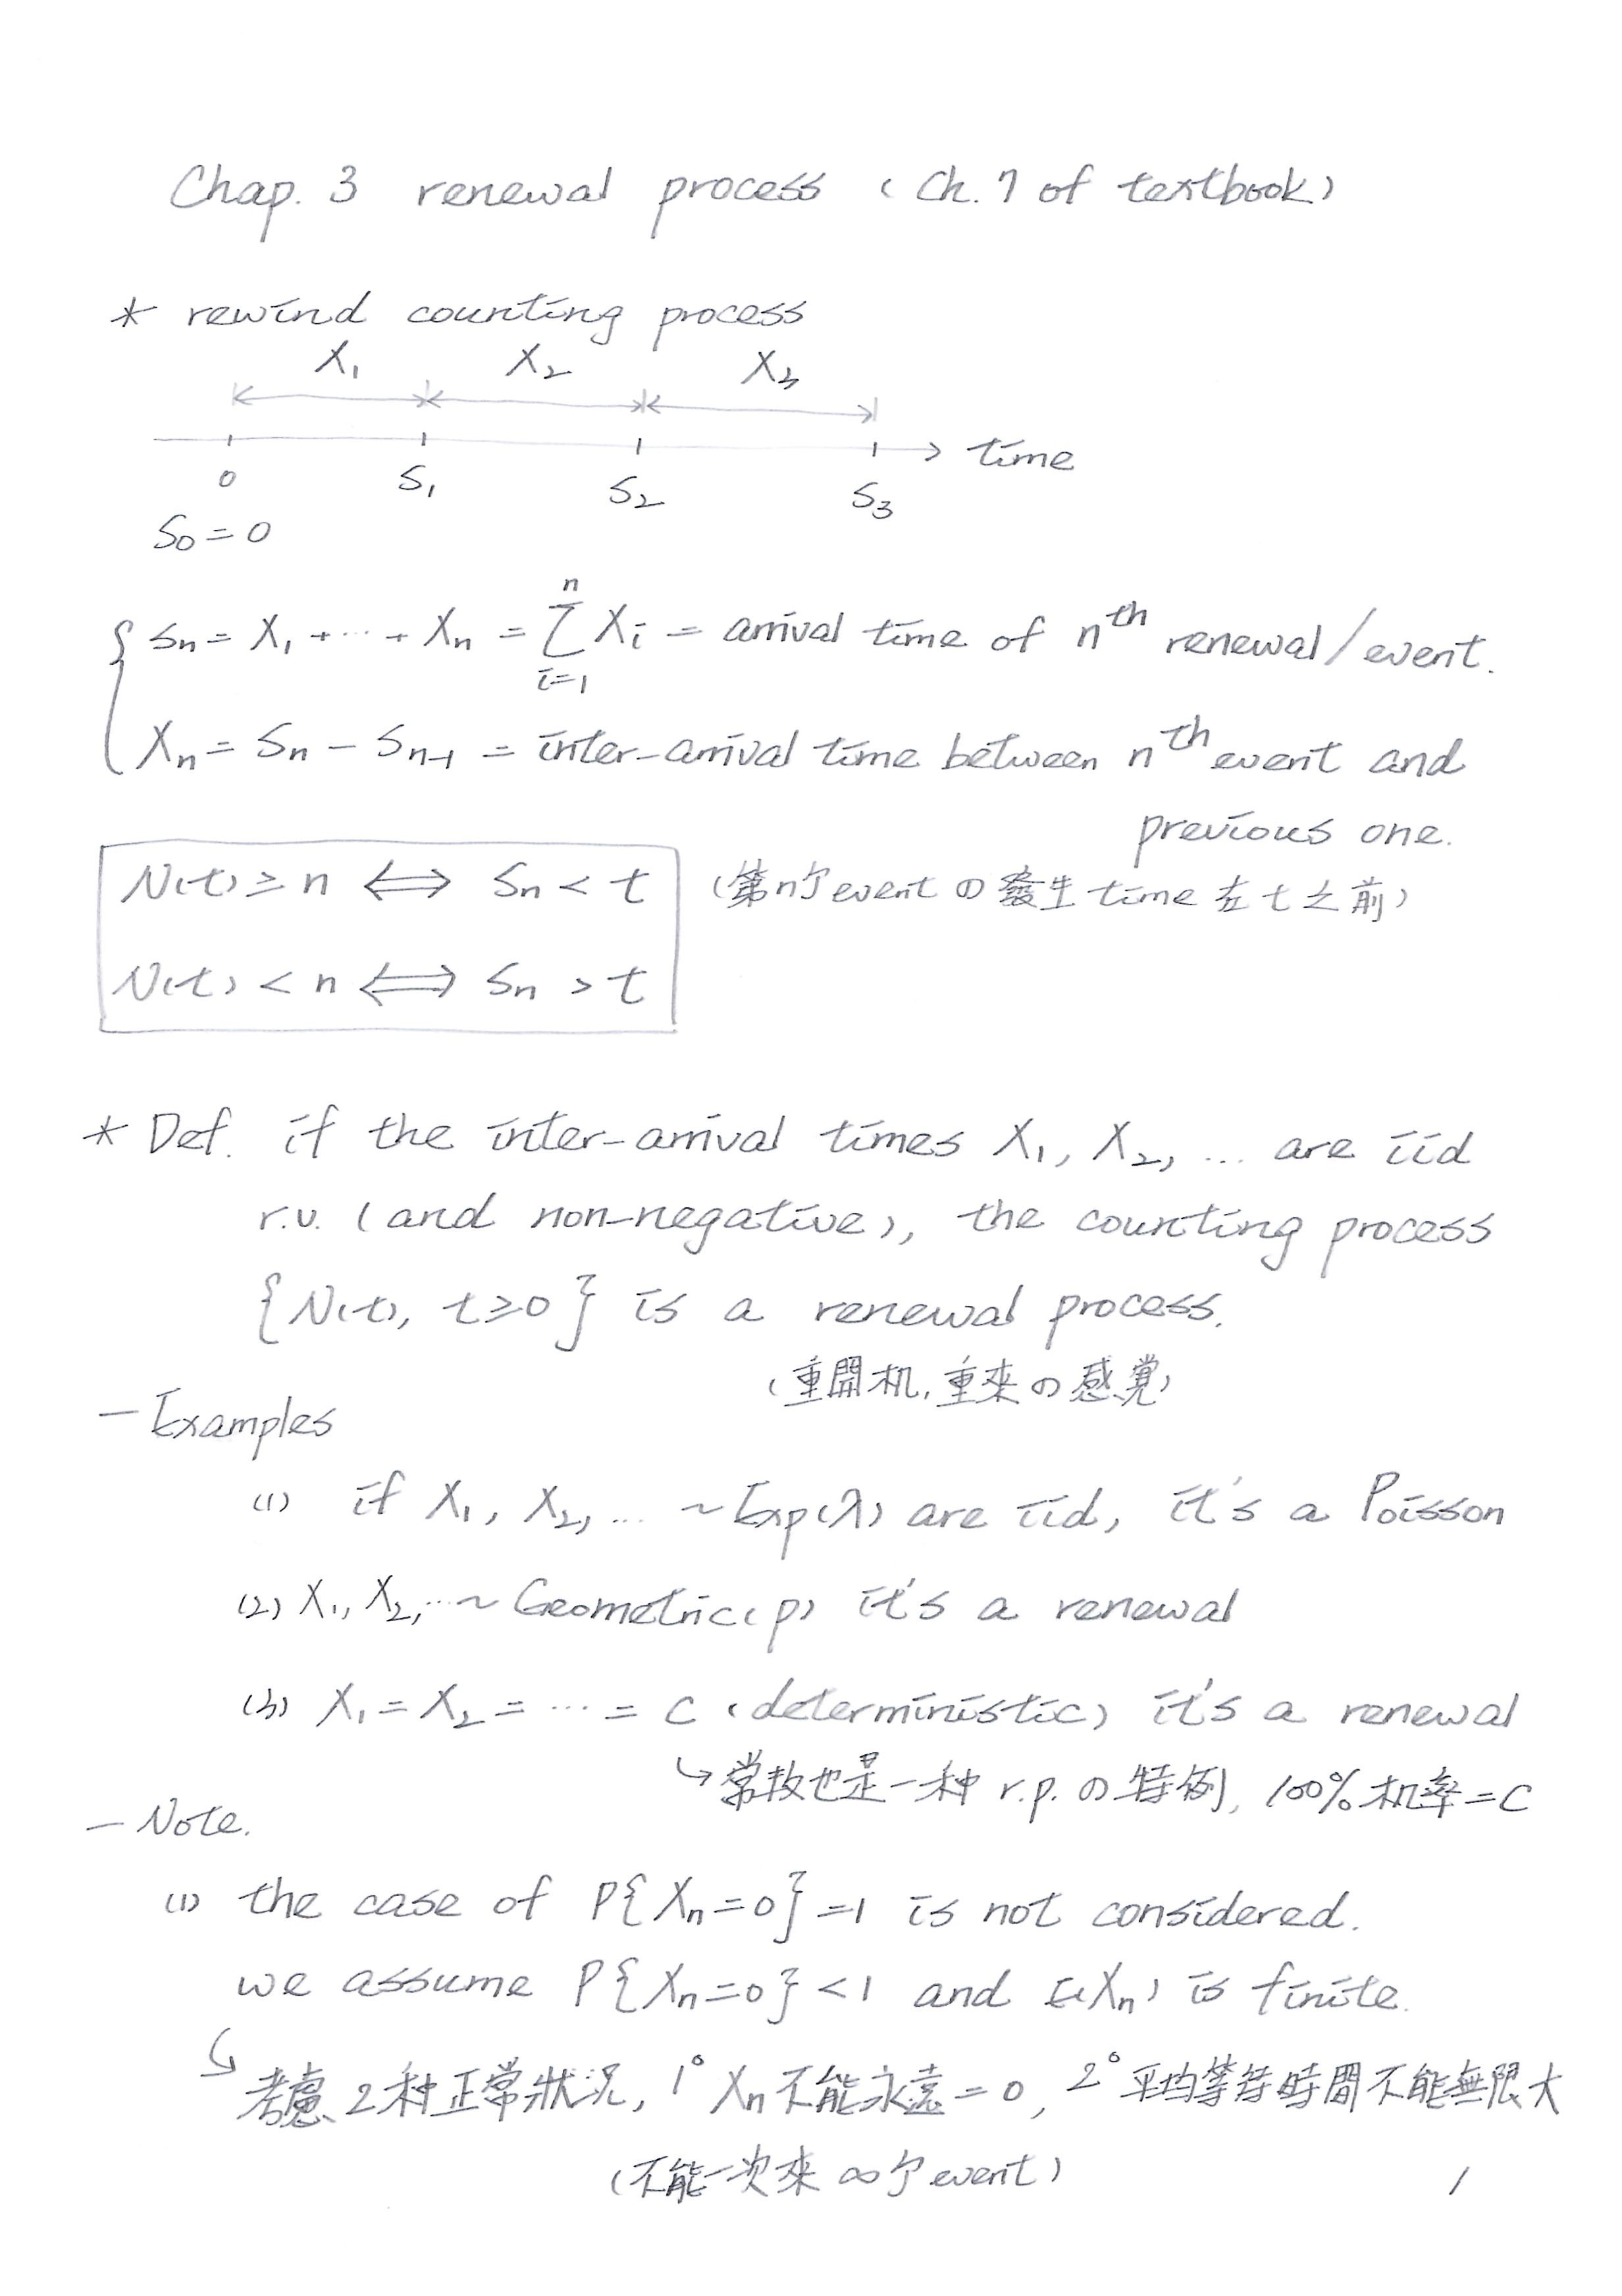 Chap. 3 renewal process (Ch. 7 of textbook)
* rewind counting process
X₁ X₂ X₃
time
0 S₁ S₂ S₃
S₀ = 0
Sₙ = X₁ + ⋯ + Xₙ = ∑ᵢ₌₁ⁿ Xᵢ = arrival time of nᵗʰ renewal/event.
Xₙ = Sₙ − Sₙ₋₁ = inter-arrival time between nᵗʰ event and
previous one.
N(t) ≥ n ⟺ Sₙ < t (第n个event の 發生 time 在 t 之前)
N(t) < n ⟺ Sₙ > t
* Def. if the inter-arrival times X₁, X₂, ... are iid
r.v. (and non-negative), the counting process
{N(t), t≥0} is a renewal process.
(重開机,重來の感覺)
— Examples
(1) if X₁, X₂, ... ~ Exp(λ) are iid, it's a Poisson
(2) X₁, X₂, ... ~ Geometric(p) it's a renewal
(3) X₁ = X₂ = ⋯ = C (deterministic) it's a renewal
↳ 常数也是一种 r.p. の特例, 100% 机率 = C
— Note.
(1) the case of P{Xₙ=0}=1 is not considered.
we assume P{Xₙ=0}<1 and E(Xₙ) is finite.
↳ 考慮2种正常狀況, 1° Xₙ不能永遠=0, 2° 平均等待時間不能無限大
(不能一次來 ∞个event)
1